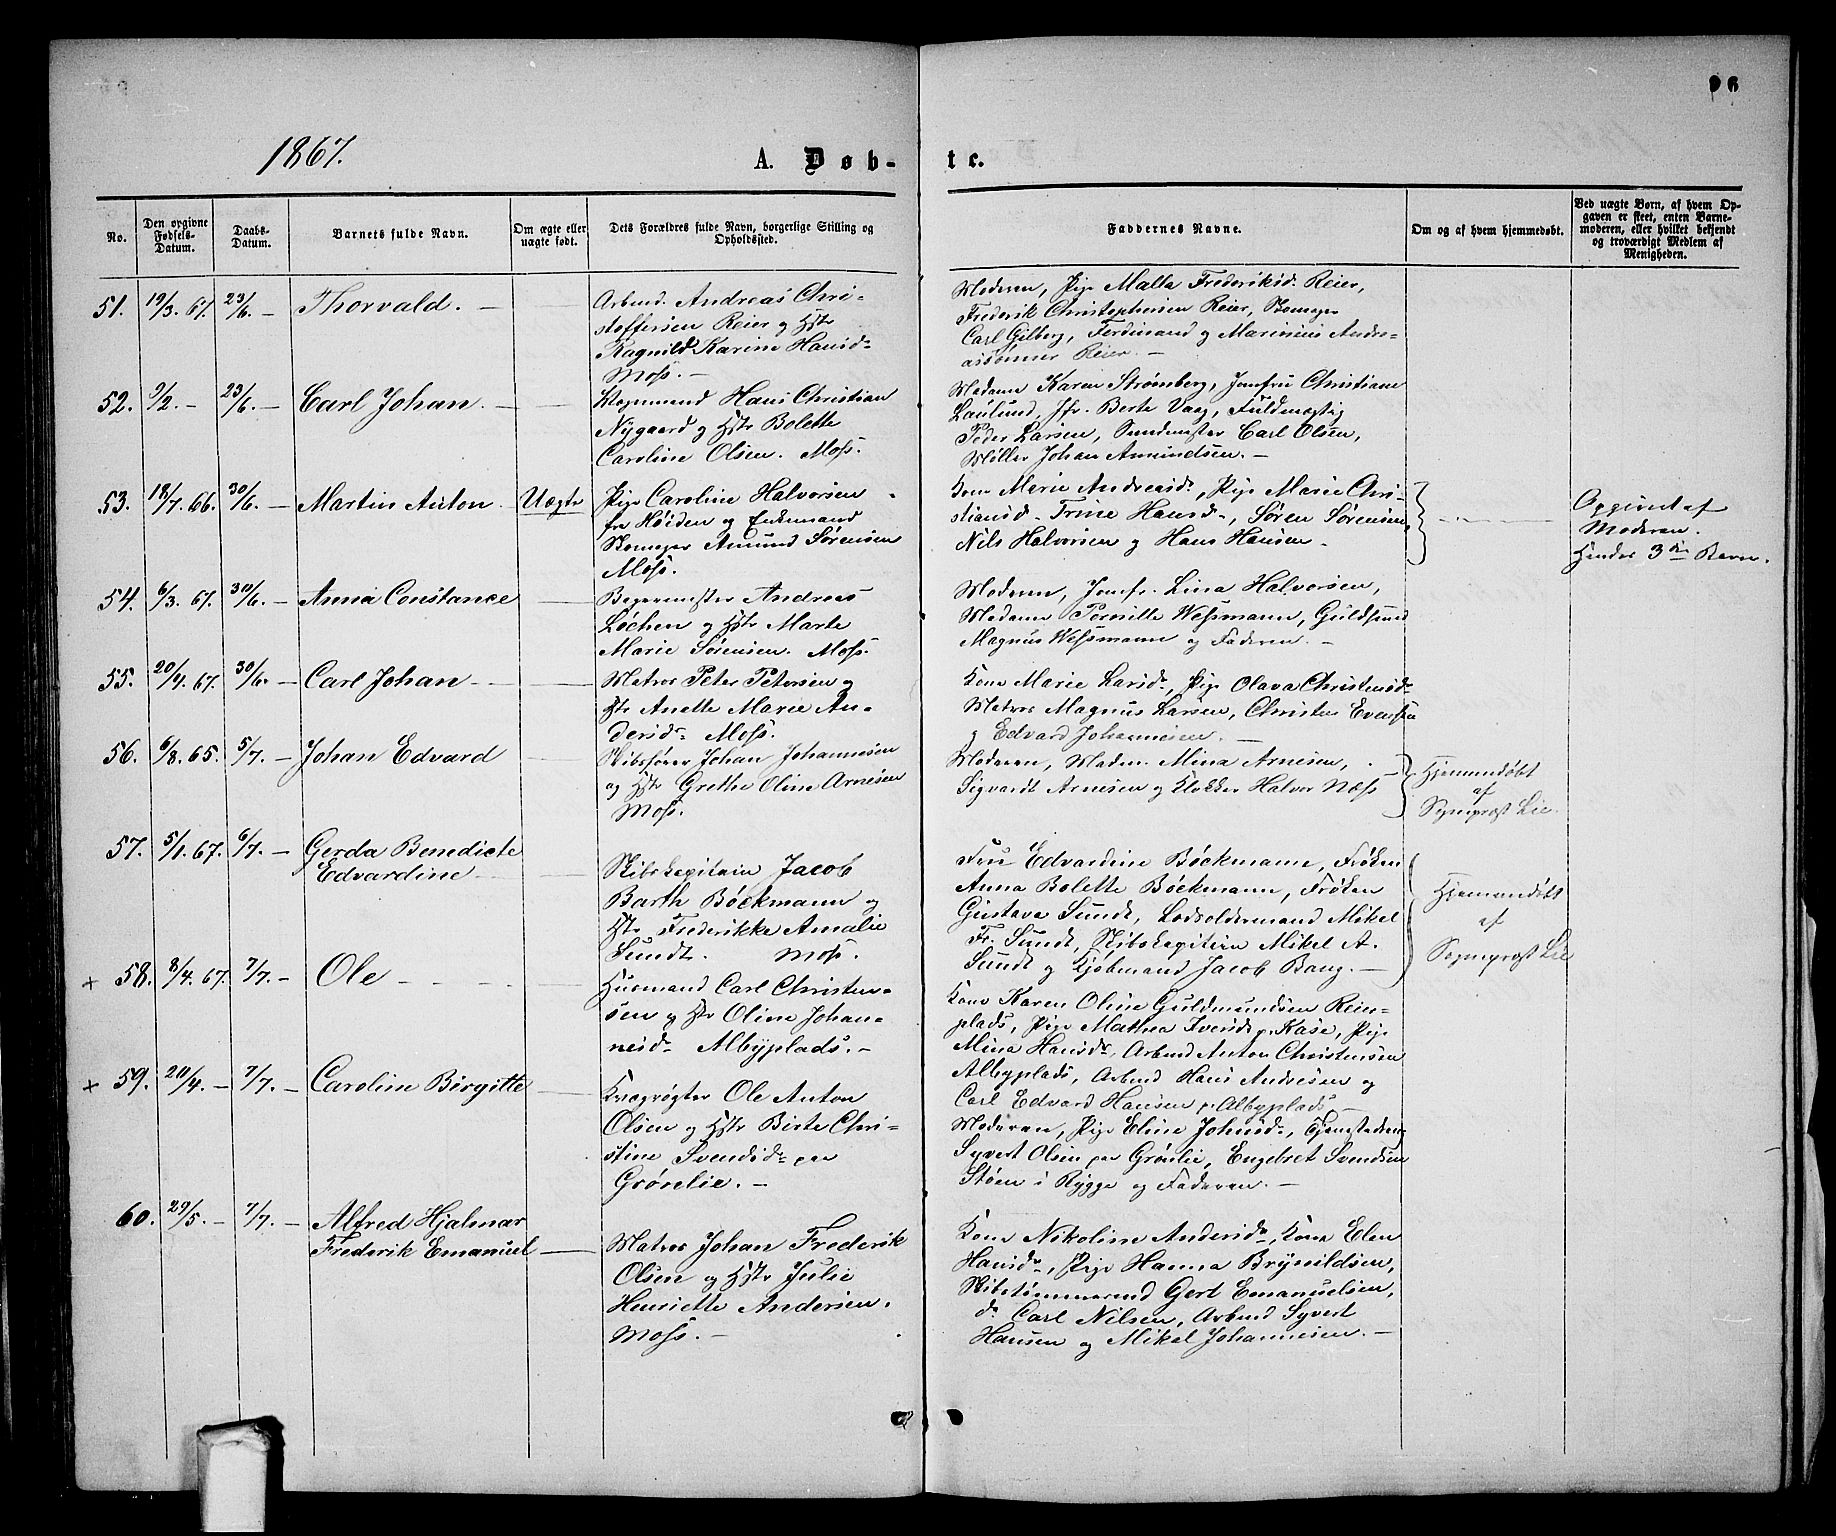 96
1867.
A. Døb-
te.
No.
Den opgivne Fødsels-Datum.
Daabs-Datum.
Barnets fulde Navn.
Om ægte eller uægte født.
Dets Forældres fulde Navn, borgerlige Stilling og Opholdssted.
Faddernes Navne.
Om og af hvem hjemmedøbt.
Ved uægte Børn, af hvem Opgaven er skeet, enten Barnemoderen, eller hvilket bekjendt og troværdigt Medlem af Menigheden.
51. 19/3. 67. 23/6. — Thorvald. —
Arbmd. Andreas Chri-
stoffersen Reier og Hstr
Ragnild Karine Hansd.
Moss. —
Moderen, Pige Malla Frederiksd. Reier,
Frederik Christophersen Reier,
Carl Gilberg, Ferdinand og Marinius Andre-
assønner Reier. —
52. 9/2. — 23/6. — Carl Johan. —
Vognmand Hans Christian
Nygaard og Hstr Bolette
Caroline Olsen. Moss.
Madam Karen Strømberg, Jomfru Christiane
Laulund, Jfr. Berte Vaag, Fuldmægtig
Peder Larsen, Carl Olsen,
Møller Johan Amundsen. —
53. 18/7. 66. 30/6. — Martin Anton. Uægte
Pige Caroline Halvorsen
fra Høiden og Enkemand
Amund Sørensen
Moss.
Kone Marie Andreasd., Pige Marie Chri-
stiansd. Trine Hansd., Søren Sørensen,
Nils Halvorsen og Hans Hansen.
Opgivet af
Moderen.
Hendes 3die Barn.
54. 6/3. 67. 30/6. — Anna Constance
Bagermester Andreas
Løchen og Hstr Marte
Marie Sørensen. Moss.
Moderen, Jomfr. Lina Halvorsen,
Madam Pernille Wessmann, Guldsmed
Magnus Wessmann og Faderen. —
55. 20/1. 67. 30/6. — Carl Johan
Matros Peter Petersen og
Hstr Anette Marie An-
dersd. Moss.
Kone Marie Larsd., Pige Olava Christensd.
Matros Magnus Larsen, Christen Evensen
og Edvard Johannesen. —
56. 6/8. 65. 5/7. — Johan Edvard
Skibsfører Johan Johannesen
og Hstr Grethe Oline Arnesen
Moss.
Moderen, Madm. Mina Arnesen,
Sigvardt Arnesen og Klokker Halvor Næss
Hjemmedøbt
af
Sogneprest Lie.
57. 5/1. 67. 6/7. — Gerda Benedicte
Edvardine
Skibskapitain Jacob
Barth Böckmann og
Hstr Frederikke Amalie
Sundt. Moss.
Fru Edvardine Böckmann, Frøken
Anna Bolette Böckmann, Frøken
Gustava Sundt, Lodsoldermand Mikel
Fr. Sundt, Skibskapitein Mikel A.
Sundt og Kjøbmand Jacob Bang. —
Hjemmedøbt
af
Sogneprest Lie
+ 58. 8/4. 67. 7/7. — Ole
Husmand Carl Christen-
sen og Hstr Oline Johan-
nesd. Albyplads. —
Kone Karen Oline Guldmundsen Reier-
plads, Pige Mathea Iversd. p. Kase, Pige
Mina Hansdr., Arbmd Anton Christensen
Albyplads, Arbmd Hans Andresen og
Carl Edvard Hansen p. Albyplads —
+ 59. 20/4. — 7/7. — Caroline Birgitte
Kvægrøgter Ole Anton
Olsen og Hstr Birte Chri-
stine Svendsdr. paa
Grønlie. —
Moderen, Pige Eline Johnsd.,
Syvert Olsen paa Grønlie, Engebret Svendsen
Støen i Rygge og Faderen. —
60. 29/5. — 7/7. — Alfred Hjalmar
Frederik Emanuel —
Matros Johan Frederik
Olsen og Hstr Julie
Henriette Andersen.
Moss. —
Kone Nikoline Andersd., Kone Elen
Hansdr., Pige Hanna Brynildsen,
Skibstømmermand Gert Emanuelsen,
do. Carl Nilsen, Arbmd Syvert
Hansen og Mikel Johannesen. —